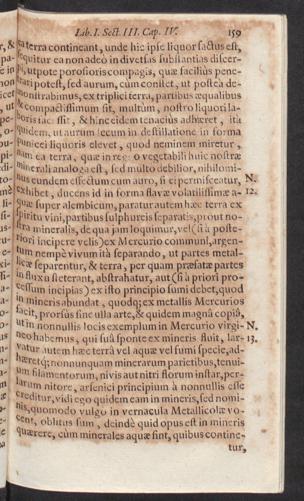 Lib. I. Sect. III. Cap. IV. 159
ea terra contineant, unde hic ipse liquor factus est,
sequitur ea non adeò in diversas substantias discer-
pi, utpote porosioris compagis, quæ faciliùs pene-
trari potest, sed aurum, cùm constet, ut postea de-
monstrabimus, ex triplici terra, partibus æqualibus
& compactissimum sit, multùm, nostro liquori la-
boris facessit, & hinc eidem tenaciùs adhæret, ità
quidem, ut aurum secum in destillatione in forma
puniceci liquoris elevet, quod neminem miretur,
nam ea terra, quæ in regno vegetabili huic nostræ
minerali analoga est, sed multò debilior, nihilomi-
nus eundem effectum cum auro, si ei permisceatur, N.
exhibet, ducens id in forma flavæ volatilissimæ a- 12.
quæ super alembicum, paratur autem hæc terra ex
spiritu vini, partibus sulphureis separatis, prout no-
stra mineralis, de qua jam loquimur, vel (si à poste-
riori incipere velis) ex Mercurio communi, argen-
tum nempè vivum ità separando, ut partes metal-
licæ separentur, & terra, per quam præfatæ partes
in fluxu steterant, abstrahatur, aut (si à priori pro-
cessum incipias) ex isto principio sumi debet, quod
in mineris abundat, quodq; ex metallis Mercurios
facit, prorsùs sine ulla arte, & quidem magnâ copiâ,
ut in nonnullis locis exemplum in Mercurio virgi- N.
neo habemus, qui suâ sponte ex mineris fluit, lar- 13.
vatur autem hæc terrâ vel aquæ vel fumi specie, ad-
hæretq; nonnunquam minerarum parietibus, tenui-
um filamentorum, nivis aut nitri florum instar, per-
larum nitore, arsenici principium à nonnullis esse
creditur, vidi ego quidem eam in mineris, sed nomi-
nis, quomodo vulgò in vernacula Metallicolæ vo-
cent, oblitus sum, deindè quid opus est in mineris
quærere, cùm minerales aquæ sint, quibus contine-
tur,